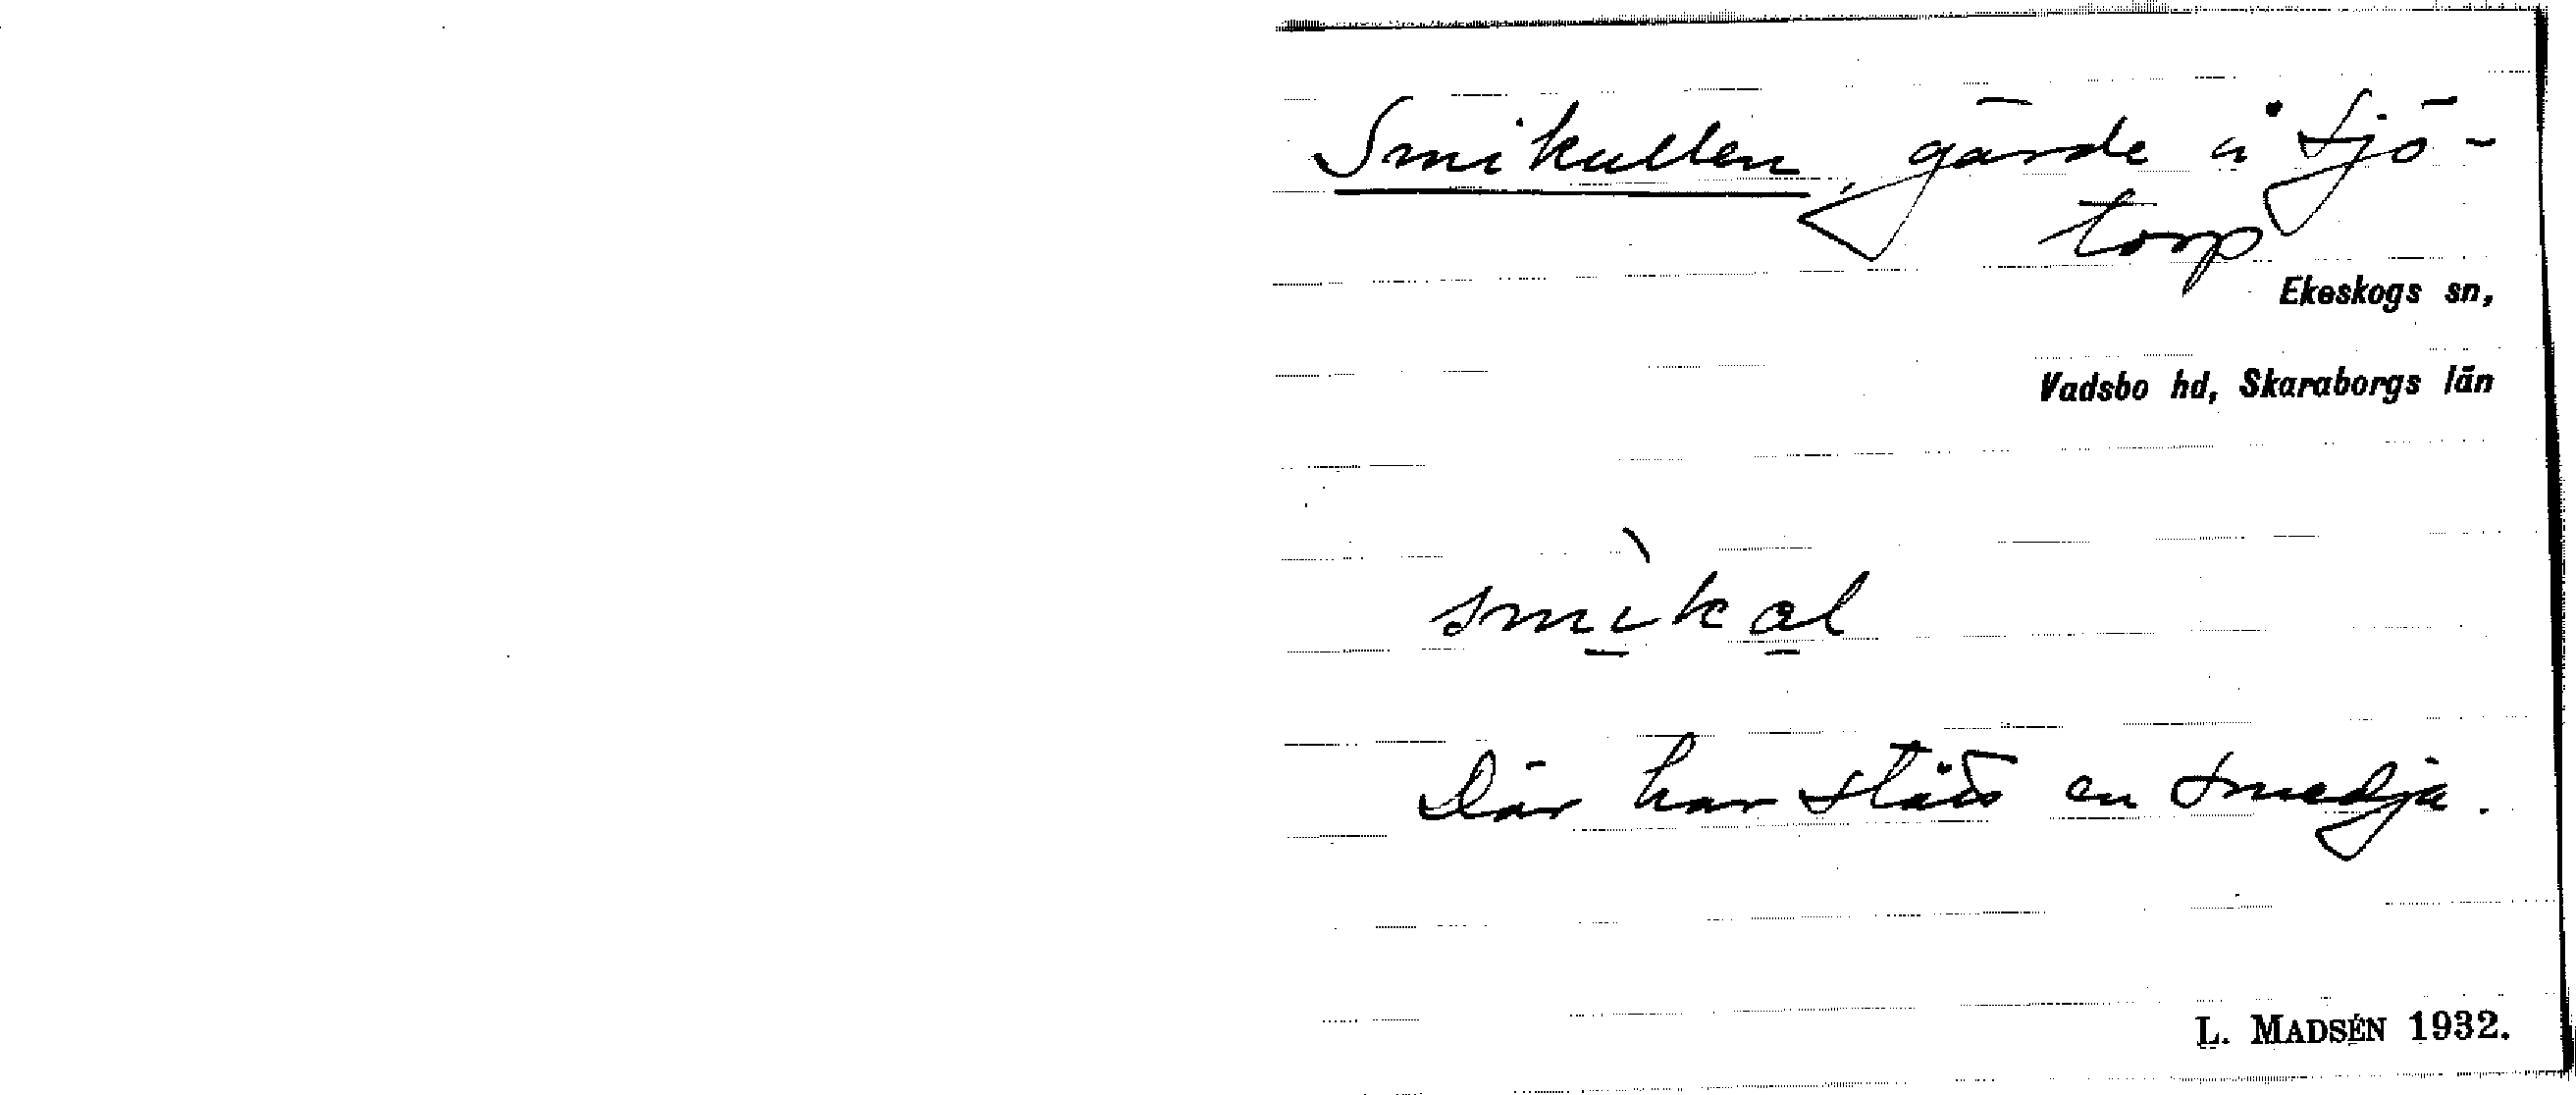 Smikullen, gärde å Sjö-
torp
Ekeskogs sn,
Vadsbo hd, Skaraborgs län
smìkal
Där har stått en smedja.
L. MADSÉN 1932.